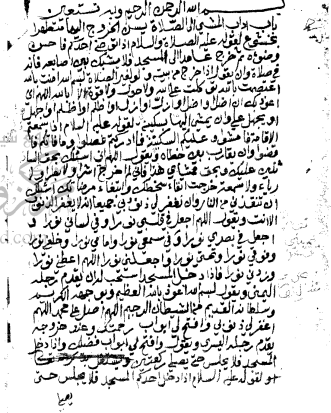 بسم الله الرحمن الرحيم وبه نستعين
باب آداب المشي الى الصلاة يسن الخروج اليها متطهرا
بخشوع لقوله عليه الصلاة والسلام اذا توضأ احدكم فاحسن
وضوءه ثم خرج عامدا الى المسجد فلا يشبكن بين اصابعه فانه
في صلاة وان يقول اذا خرج من بيته ولو لغير الصلاة بسم الله امنت بالله
اعتصمت بالله توكلت على الله ولا حول ولا قوة الا بالله اللهم اني
اعوذ بك ان اضل او اضل او ازل او ازل او اظلم او اظلم او اجهل
او يجهل علي وان يمشي اليها بسكينة لقوله عليه السلام اذا سمعتم
الاقامة فامشوا وعليكم السكينة فما ادركتم فصلوا وما فاتكم فا
قضوا وان يقارب بين خطاه ويقول اللهم اني اسئلك بحق السا
ئلين عليك وبحق ممشاي هذا فاني لم اخرج اشرا ولا بطرا ولا
رياء ولا سمعة خرجت اتقاء سخطك وابتغاء مرضاتك اسئلك
ان تنقذني من النار وان تغفر لي ذنوبي جميعا انه لا يغفر الذنوب
الا انت ويقول اللهم اجعل في قلبي نورا وفي لساني نورا و
اجعل في بصري نورا وفي سمعي نورا وامامي نورا وخلفي نورا
وفوقي نورا وتحتي نورا واجعلني نورا اللهم اعطني نورا
وزدني نورا فاذا دخل المسجد استحب له ان يقدم رجله
اليمنى ويقول بسم الله اعوذ بالله العظيم وبوجهه الكريم
وسلطانه القديم من الشيطان الرجيم اللهم صل على محمد اللهم
اغفر لي ذنوبي وافتح لي ابواب رحمتك وعند خروجه
يقدم رجله اليسرى ويقول وافتح لي ابواب فضلك واذا دخل
المسجد فلا يجلس حتى يصلي ركعتين
لقوله عليه السلام اذا دخل احدكم المسجد فلا يجلس حتى
يصلي